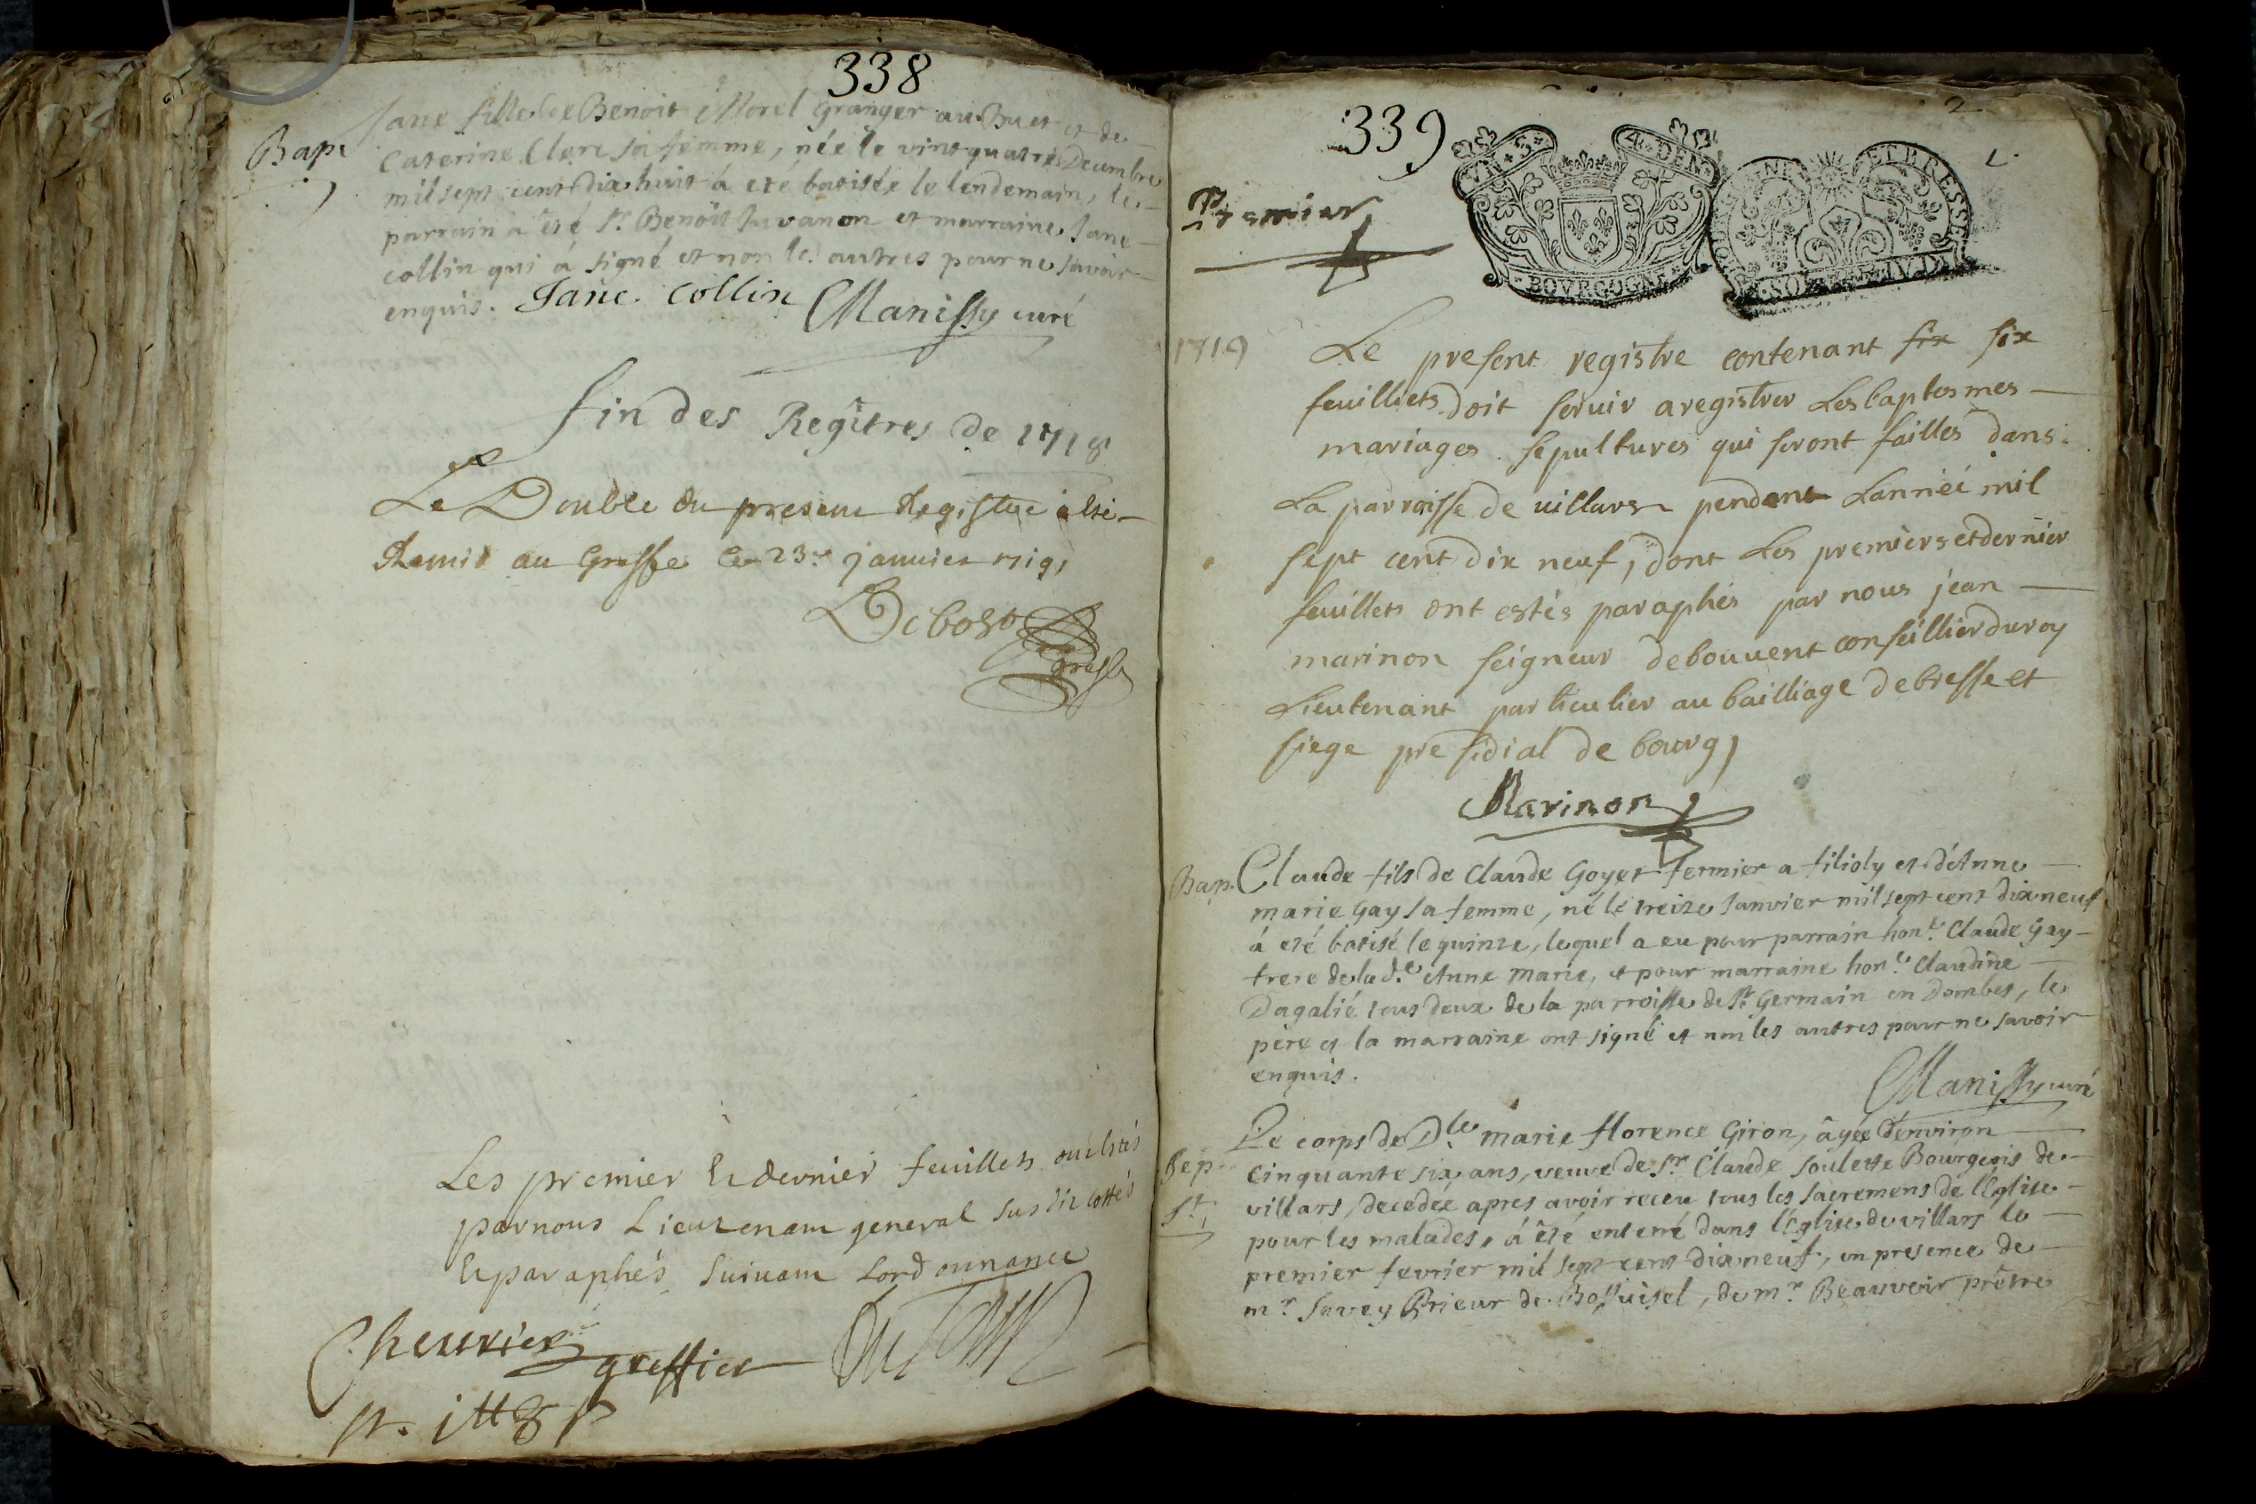 338
Bap.
Jane fille de Benoit Morel Granger au Buet et de
Caterine Clerc sa femme, née le vint quatre Decembre
mil sept cent dix huit á eté batisée le lendemain, le
parrain a été Sr. Benoît Juvanon et marraine Jane
collin qui á signé et non les autres pour ne savoir
enquis. Jane Collin Manissy curé
fin des Regîtres de 1718
Le Double du present Registre a esté
Remis au Greffe le 23e janvier 1719,
Debost
greffr
Les premier et dernier feuillets ont estés
par nous Lieutenant general susdit cottés
et paraphés suivant Lordonnance
Cheurier greffier
339
2
Premier
VN. S.
4. DEN.
BOVRGOGNE
ET BRESSE
1719
Le present registre contenant six six
feuilliets doit servir a registrer Les baptesmes
mariages sepultures qui seront failles dans
La parroisse de villars pendent Lanneé mil
sept cent dix neuf, dont Les premiers et dernier
feuillets ont estés paraphés par nous jean
marinon seigneur de bouvent conseillier du roy
Lieutenant particulier au bailliage de bresse et
siege presidial de bourg,
Marinon
Bap.
Claude fils de Claude Goyet fermier a filioly et d'Anne
marie Gay sa femme, né le treize Janvier mil sept cent dix neuf
á eté batisé le quinze, lequel a eu pour parrain hon.e Claude Gay
frere de la d.e Anne Marie, et pour marraine hon.e Claudine
Dagalié tous deux de la parroisse de St. Germain en Dombes, le
pere et la marraine ont signé et non les autres pour ne savoir
enquis.
Manissy curé
Sep.
Le corps de Dle. marie florence Giron, âgée d'environ
cinquante six ans, veuve de Sr. Claude Soulette Bourgeois de
villars, decedée apres avoir receu tous les sacremens de l'Eglise
pour les malades, á êté enterré dans l'Eglise de villars le
premier fevrier mil sept cent dix neuf, en presence de
mr. Juvey Prieur de , de mr. Beauvoir prêtre